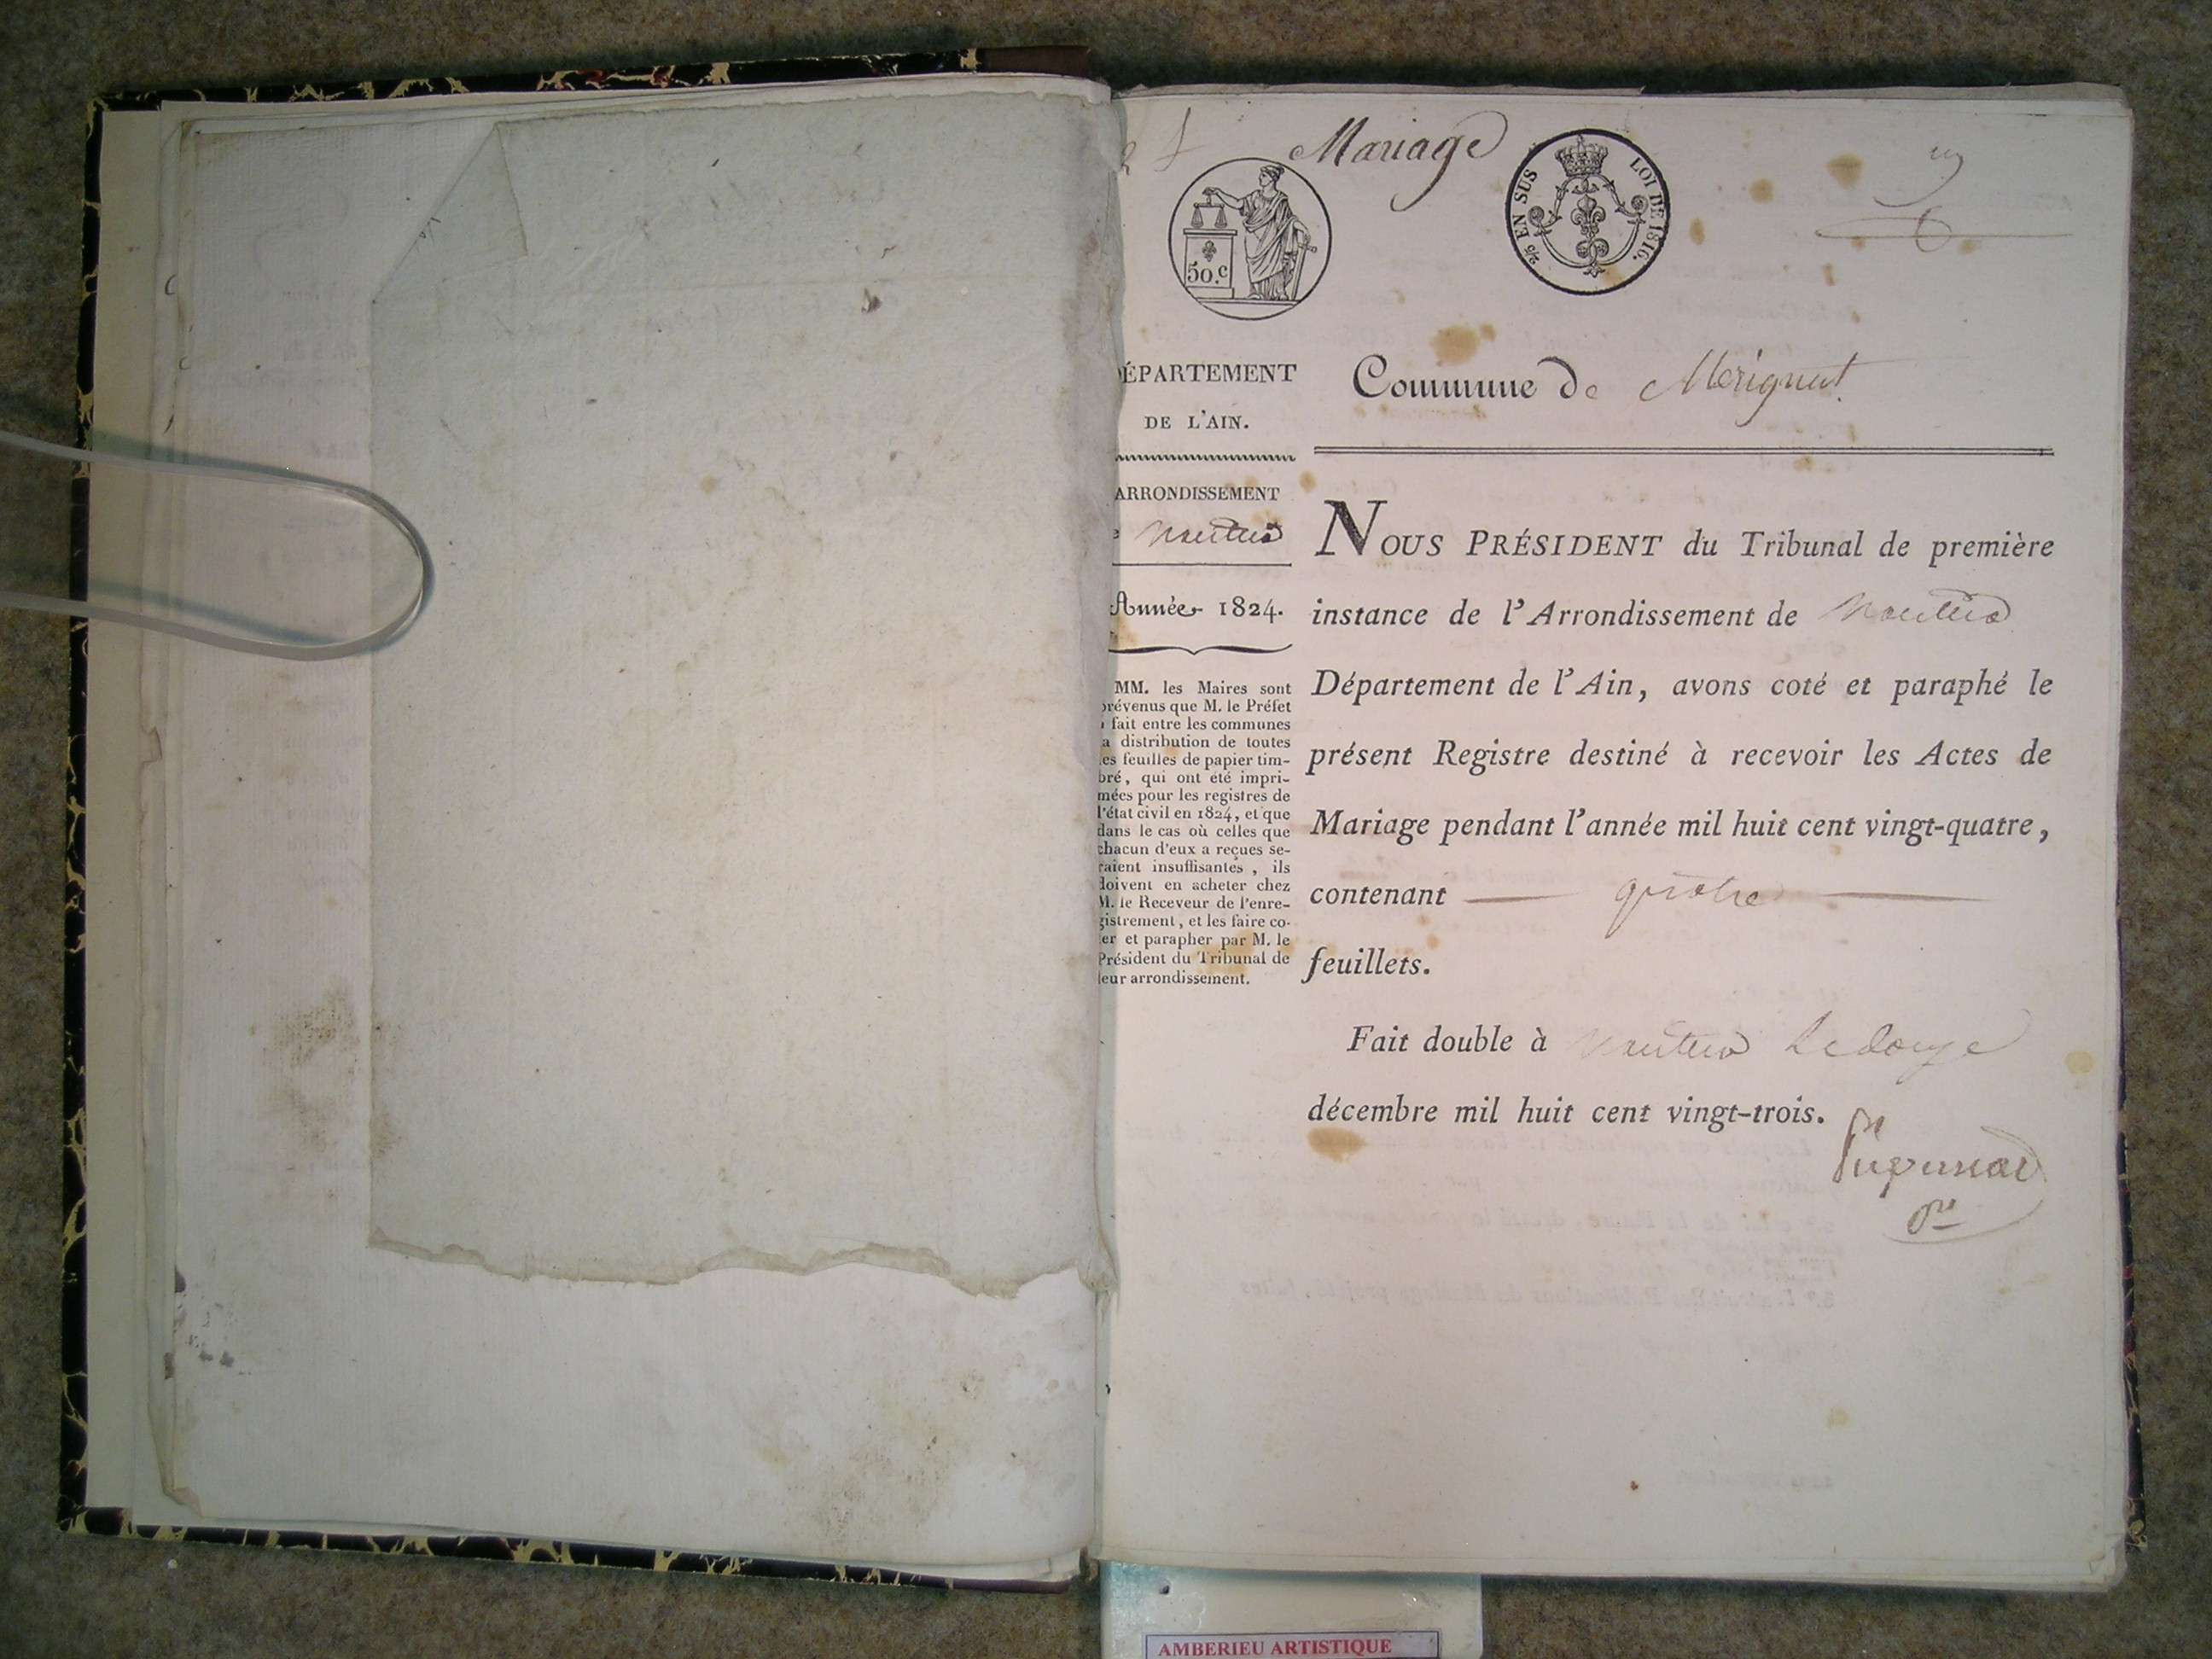 Mariage
50.c
2/10 EN SUS LOI DE 1816.
DÉPARTEMENT
DE L'AIN.
ARRONDISSEMENT
Nantua
Année 1824.
MM. les Maires sont
prévenus que M. le Préfet
a fait entre les communes
la distribution de toutes
les feuilles de papier tim-
bré, qui ont été impri-
mées pour les registres de
l'état civil en 1824, et que
dans le cas où celles que
chacun d'eux a reçues se-
raient insuffisantes, ils
doivent en acheter chez
M. le Receveur de l'enre-
gistrement, et les faire co-
ter et parapher par M. le
Président du Tribunal de
leur arrondissement.
Commune de Mérignat
NOUS PRÉSIDENT du Tribunal de première
instance de l'Arrondissement de Nantua
Département de l'Ain, avons coté et paraphé le
présent Registre destiné à recevoir les Actes de
Mariage pendant l'année mil huit cent vingt-quatre,
contenant quatre
feuillets.
Fait double à Nantua Le douze
décembre mil huit cent vingt-trois.
AMBERIEU ARTISTIQUE